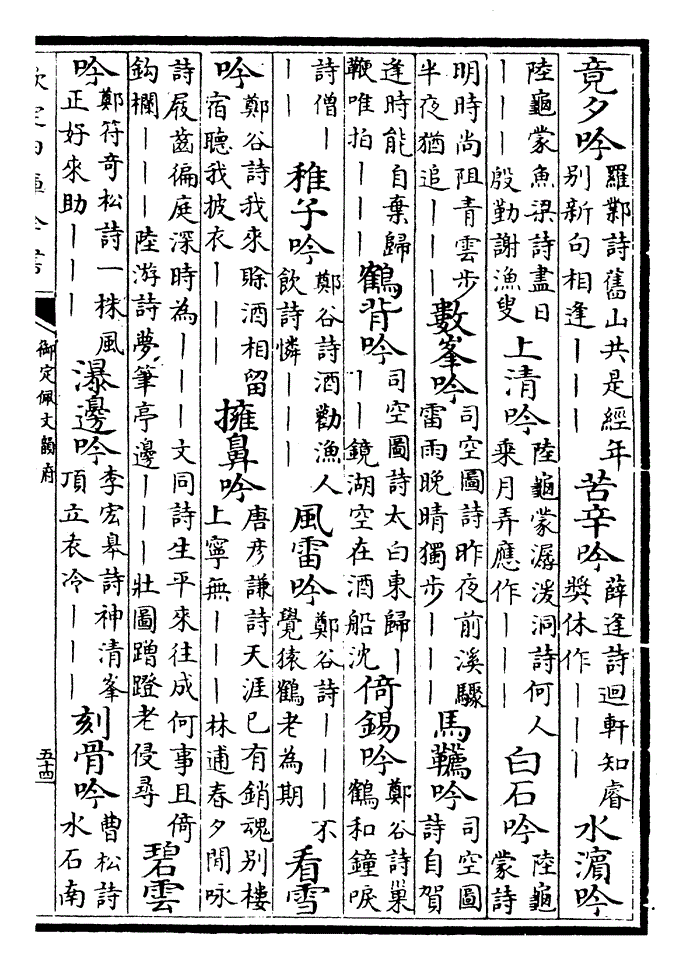 竟夕吟 羅鄴詩舊山共是經年別新句相逢｜｜｜ 苦辛吟 薛逢詩迴軒知睿奬休作｜｜｜ 水濵吟
陸龜蒙魚梁詩盡日｜｜殷勤謝漁叟 上清吟 陸龜蒙潺湲洞詩何人乗月弄應作｜｜｜ 白石吟 陸龜蒙詩
明時尚阻青雲步半夜猶追｜｜｜ 數峯吟 司空圖詩昨夜前溪驟雷雨晚晴獨步｜｜｜ 馬韉吟 司空圖詩自賀
逢時能自棄歸鞭唯拍｜｜｜ 鶴背吟 司空圖詩太白東歸｜｜｜鏡湖空在酒船沈 倚錫吟 鄭谷詩巢鶴和鐘唳
詩僧｜｜｜ 稚子吟 鄭谷詩酒勸漁人飲詩憐｜｜｜ 風雷吟 鄭谷詩｜｜｜不覺猿鶴老為期 看雪
吟 鄭谷詩我來賒酒相留宿聽我披衣｜｜｜ 擁鼻吟 唐彦謙詩天涯已有銷魂别樓上寧無｜｜｜林逋春夕閒咏
詩屐齒徧庭深時為｜｜｜文同詩生平來往成何事且倚鈎欄｜｜｜陸游詩夢筆亭邊｜｜｜壯圖蹭蹬老侵尋 碧雲
吟 鄭符奇松詩一株風正好來助｜｜｜ 瀑邊吟 李宏皋詩神清峯頂立衣冷｜｜｜ 刻骨吟 曹松詩水石南
欽定四庫全書 御定佩文韻府 五十四